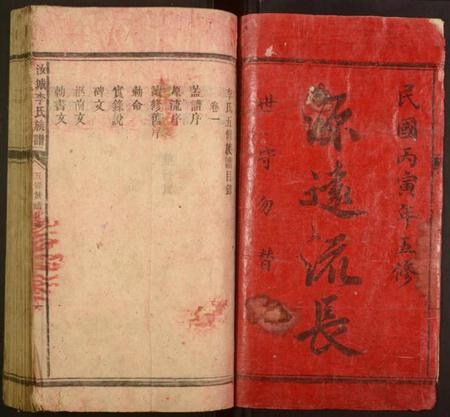 民國丙寅年五修
源遠流長
世守勿替
李氏五修族譜目錄
卷一
蓝譜序
源流序
續修舊序
勅命
實錄說
碑文
祝前文
勅書文
汝城李氏族譜
五修族譜